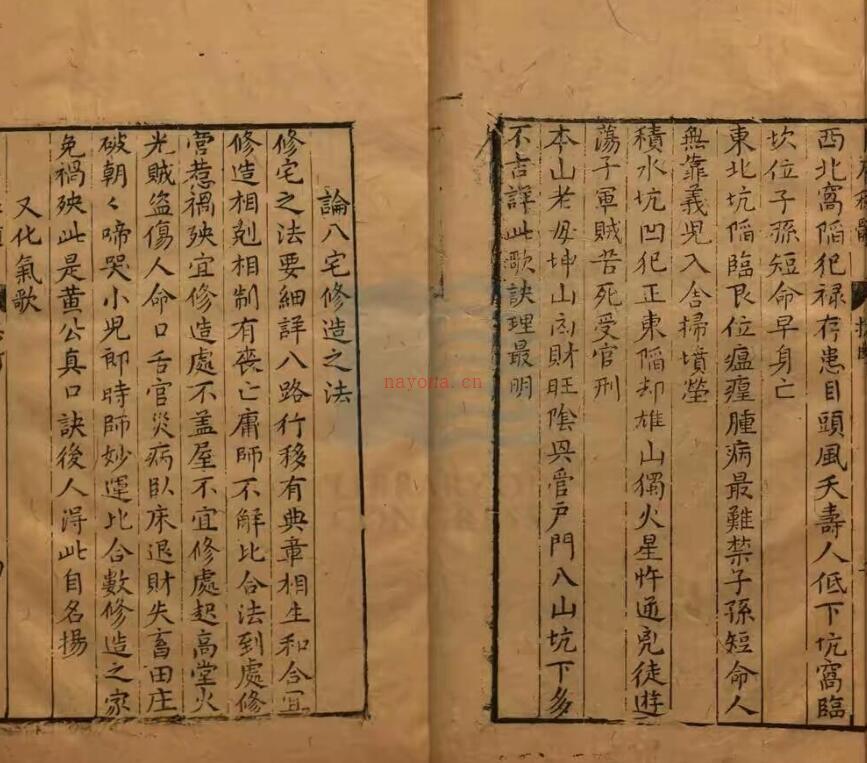 西北窩陷犯禄存患目頭風夭壽人低下坑窩臨
坎位子孫短命早身亡
東北坑陷臨艮位瘟𤸇腫病最難禁子孫短命人
無靠義児入舎掃墳塋
積水坑凹犯正東陷却雄山獨火星忤逆兇徒遊
蕩子軍賊苦死受官刑
本山老母坤山肉財旺陰興管戸門八山坑下多
不吉詳此歌訣理最明
論八宅修造之法
修宅之法要細詳八路行移有典章相生和合宜
修造相剋相制有喪亡庸師不觧比合法到處修
营惹禍殃宜修造處不盖屋不宜修處起高堂火
光賊盗傷人命口舌官災病臥床退財失畜田庄
破朝々啼哭小児郎時師妙運比合數修造之家
免禍殃此是黄公真口訣後人淂此自名揚
又化氣歌
nayona.cn